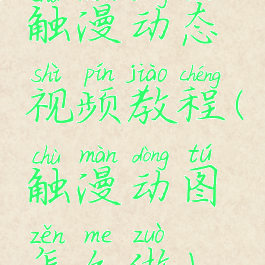 触漫动态
shì pín jiào chéng
视频教程(
chù màn dòng tú
触漫动图
zěn me zuò
怎么做)